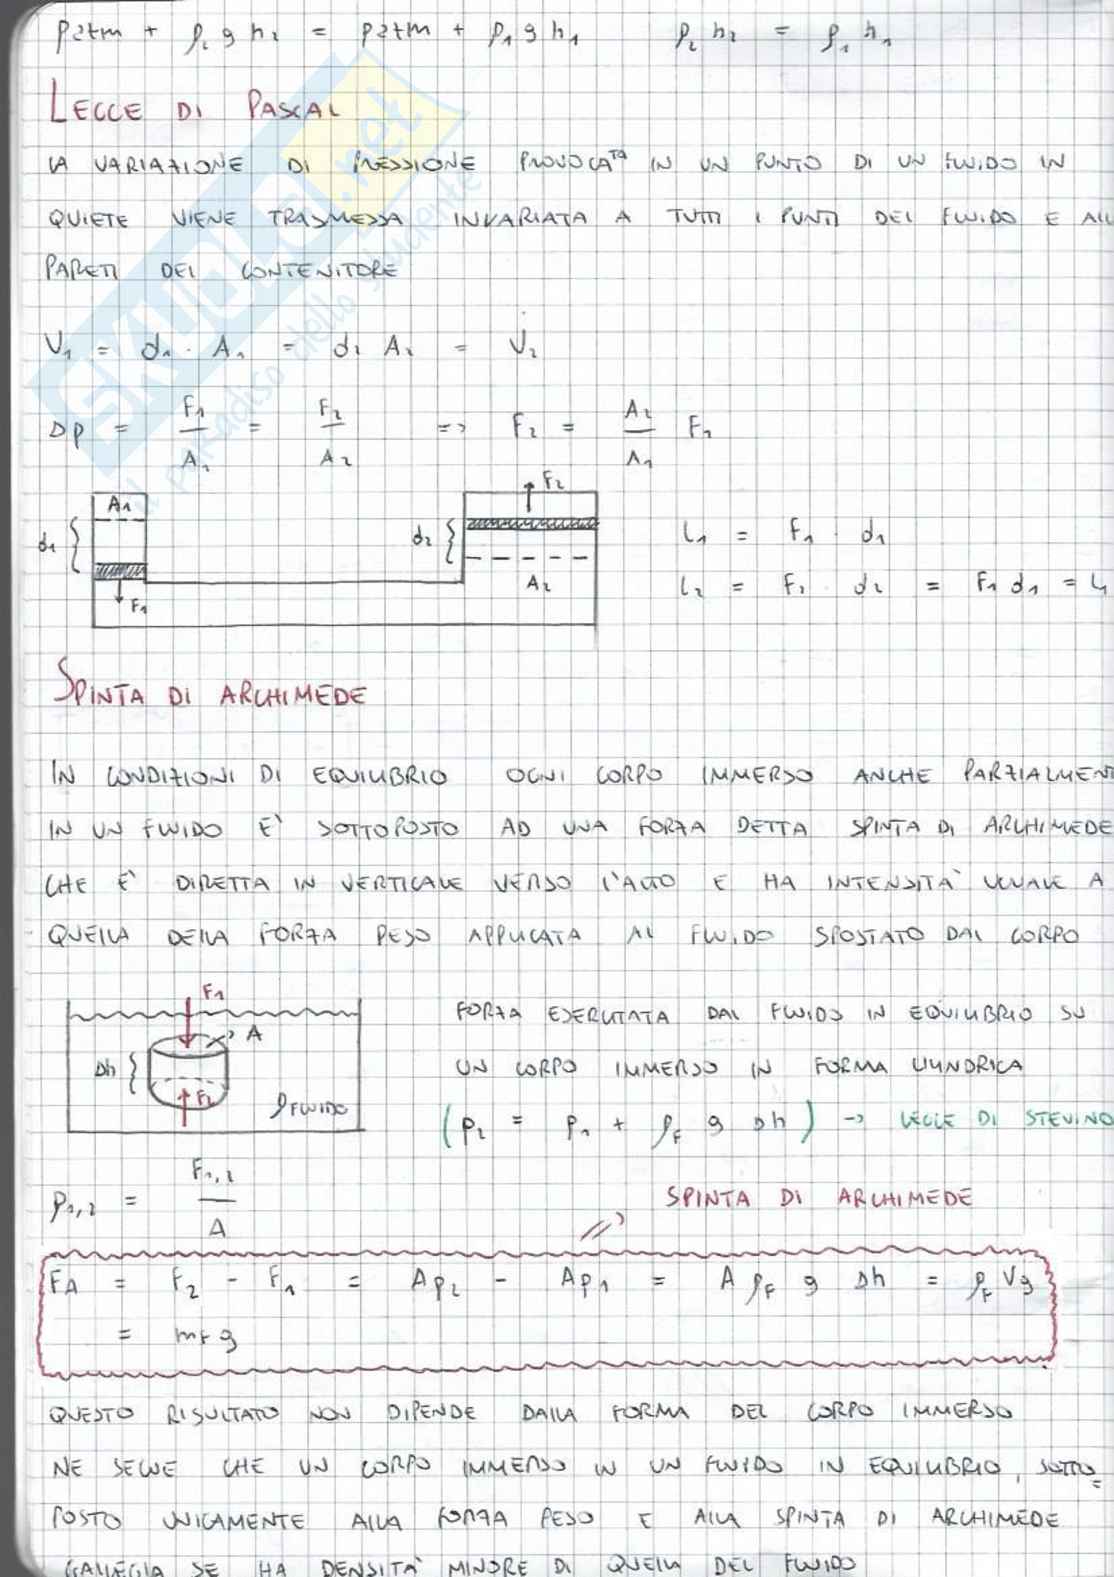 patm + ρ₂ g h₂ = patm + ρ₁ g h₁ ρ₂ h₂ = ρ₁ h₁
LEGGE DI PASCAL
LA VARIAZIONE DI PRESSIONE PROVOCATA IN UN PUNTO DI UN FLUIDO IN
QUIETE VIENE TRASMESSA INVARIATA A TUTTI I PUNTI DEL FLUIDO E ALL
PARETI DEL CONTENITORE
V₁ = d₁ · A₁ = d₂ A₂ = V₂
Δp = F₁/A₁ = F₂/A₂ => F₂ = A₂/A₁ F₁
A₁
F₂
d₁
d₂
A₂
F₁
L₁ = F₁ · d₁
L₂ = F₂ · d₂ = F₁ d₁ = L₁
SPINTA DI ARCHIMEDE
IN CONDIZIONI DI EQUILIBRIO OGNI CORPO IMMERSO ANCHE PARZIALMENT
IN UN FLUIDO E' SOTTOPOSTO AD UNA FORZA DETTA SPINTA DI ARCHIMEDE
CHE E' DIRETTA IN VERTICALE VERSO L'ALTO E HA INTENSITA' UGUALE A
QUELLA DELLA FORZA PESO APPLICATA AL FLUIDO SPOSTATO DAL CORPO
F₁
A
Δh
F₂
ρFLUIDO
FORZA ESERCITATA DAL FLUIDO IN EQUILIBRIO SU
UN CORPO IMMERSO IN FORMA CILINDRICA
(p₂ = p₁ + ρF g Δh) -> LEGGE DI STEVINO
p₁,₂ = F₁,₂/A
SPINTA DI ARCHIMEDE
FA = F₂ - F₁ = Ap₂ - Ap₁ = A ρF g Δh = ρF Vg
= mF g
QUESTO RISULTATO NON DIPENDE DALLA FORMA DEL CORPO IMMERSO
NE SEGUE CHE UN CORPO IMMERSO IN UN FLUIDO IN EQUILIBRIO, SOTTO=
POSTO UNICAMENTE ALLA FORZA PESO E ALLA SPINTA DI ARCHIMEDE
GALLEGGIA SE HA DENSITA' MINORE DI QUELLA DEL FLUIDO
SKUOLA.net
il paradiso dello studente